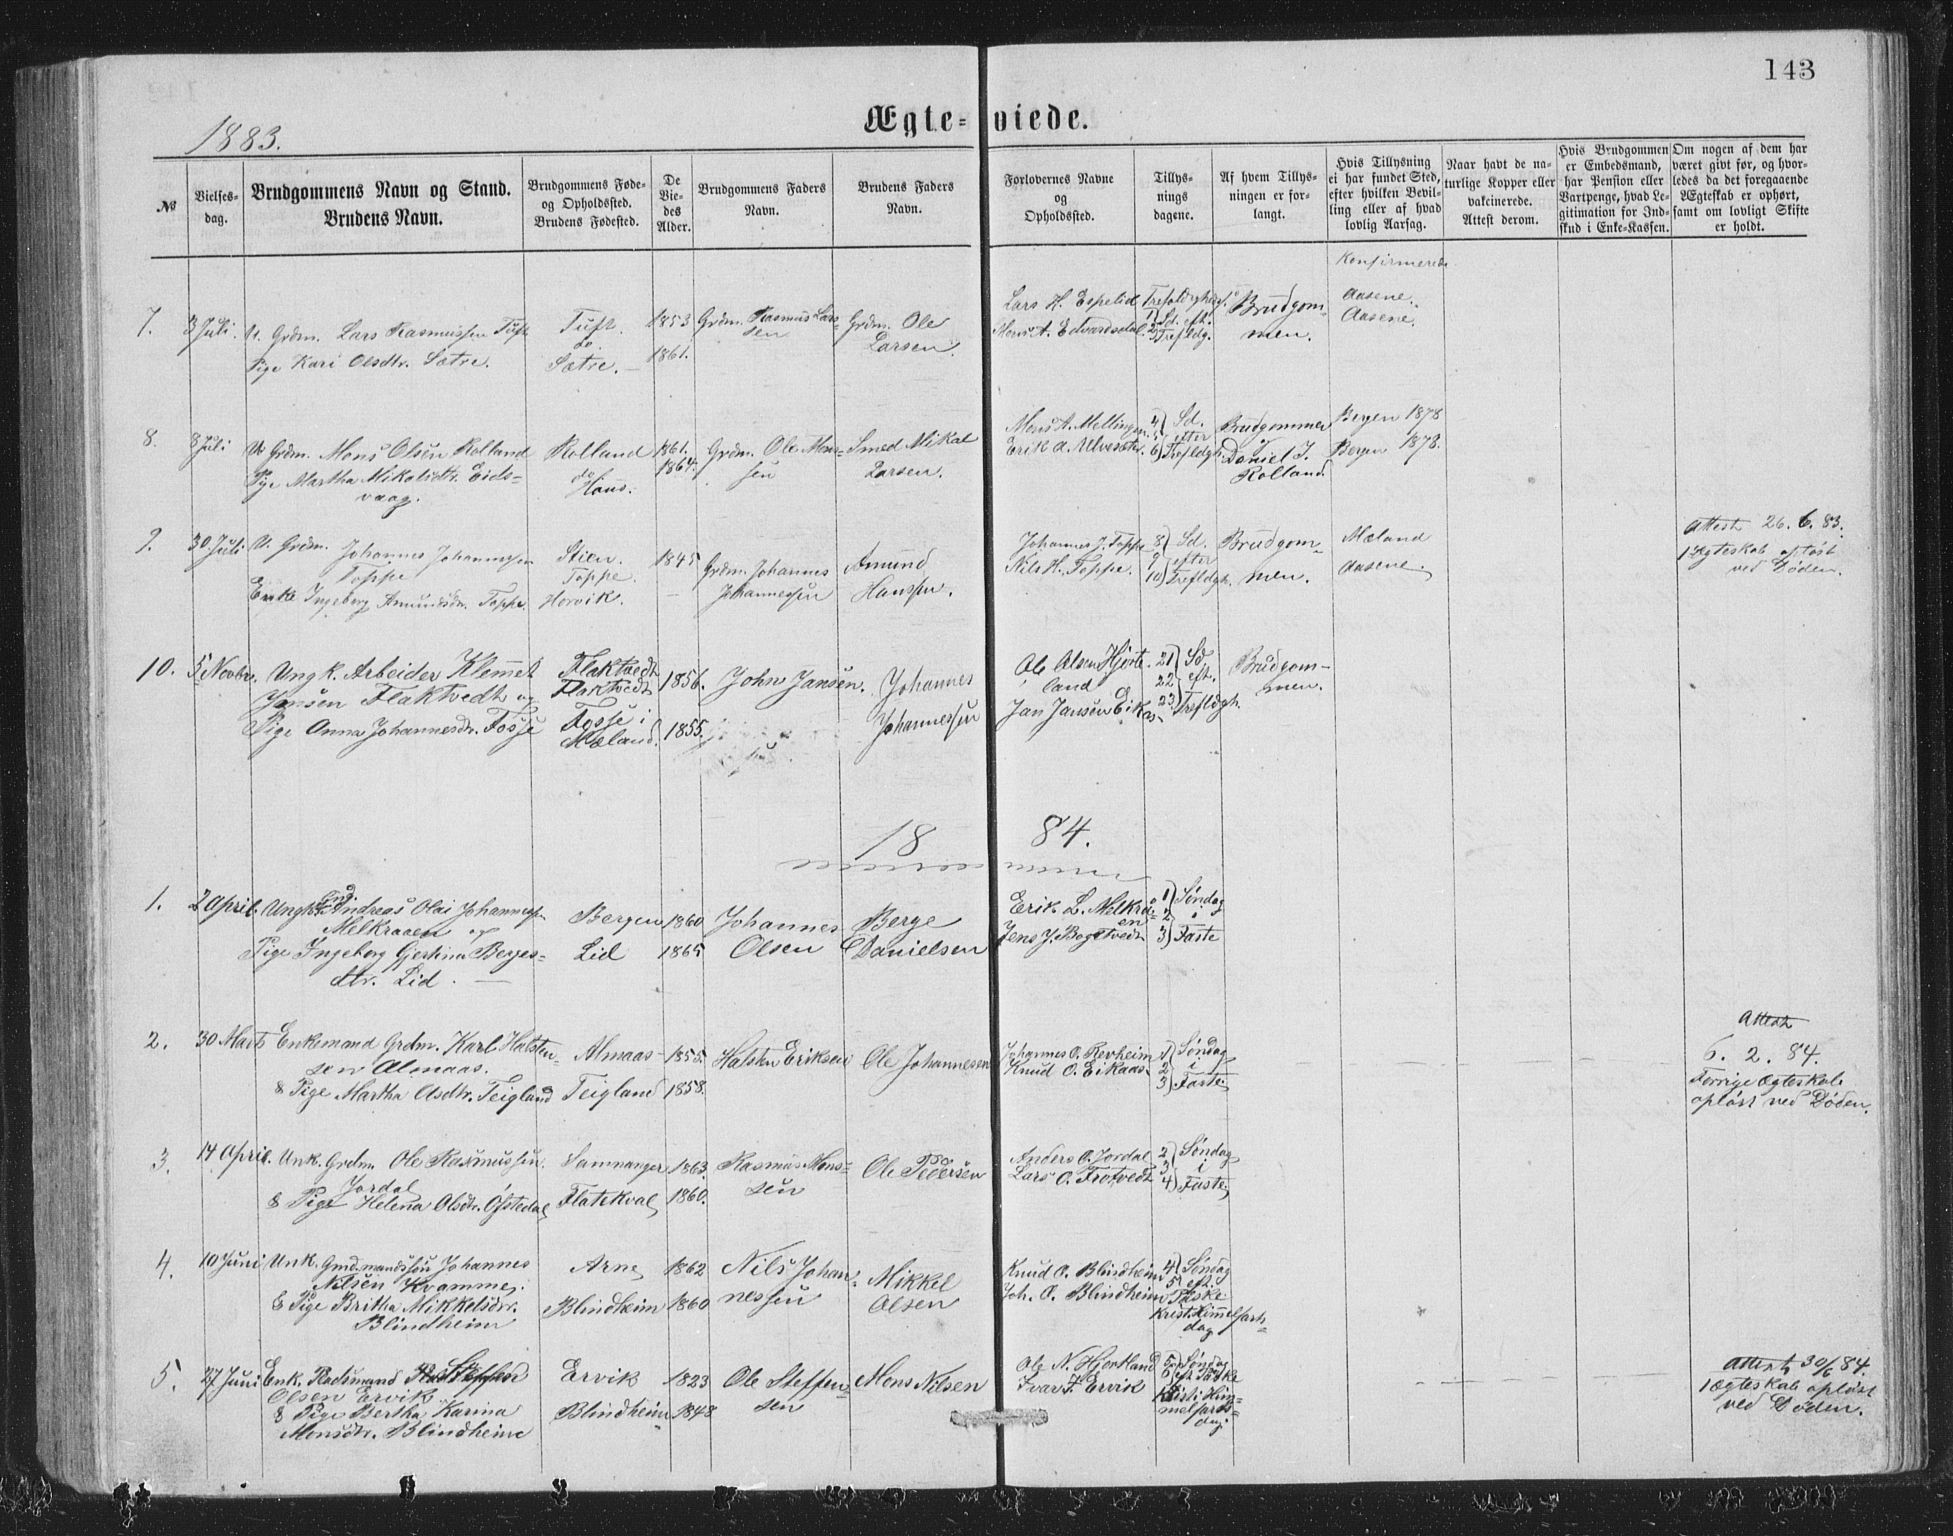 143
Ægte-viede.
1883.
№
Vielses-
dag.
Brudgommens Navn og Stand.
Brudens Navn.
Brudgommens Føde-
og Opholdssted.
Brudens Fødested.
De
Vie-
des
Alder.
Brudgommens Faders
Navn.
Brudens Faders
Navn.
Forlovernes Navne
og
Opholdssted.
Tillys-
nings
dagene.
Af hvem Tillys-
ningen er for-
langt.
Hvis Tillysning
ei har fundet Sted,
efter hvilken Bevil-
ling eller af hvad
lovlig Aarsag.
Naar havt de na-
turlige Kopper eller
vakcinerede.
Attest derom.
Hvis Brudgommen
er Embedsmand,
har Pension eller
Vartpenge, hvad Le-
gitimation for Ind-
skud i Enke-Kassen.
Om nogen af dem har
været givt før, og hvor-
ledes da det foregaaende
Ægteskab er ophørt,
samt om lovligt Skifte
er holdt.
Konfirmerede
7. 3 Juli. U. Grdm. Lars Rasmussen Tuft
Pige Kari Olsdtr. Sætre.
Tuft.
do
Sætre.
1853
1861.
Grdm. Rasmus Lars-
sen
Grdm. Ole
Larsen.
Lars H. Espelid
Mons A. Edvardsdal.
Trefoldighedsf.
1) Sd. eft.
2) Trefldg.
Brudgom-
men.
Aasene.
Aasene.
8. 8 Juli U. Grdm. Mons Olsen Rolland
Pige Martha Mikalsdtr. Eids-
vaag.
Rolland
do
Haus.
1861.
1864.
Grdm. Ole Mons-
sen
Smed Mikal
Larsen.
Mons A. Mellingen.
Erik A. Ulvesæter.
4) Sd.
5 efter
6) Trefldgh.
Brudgommen
Daniel J.
Rolland.
Bergen 1878
Bergen 1878.
9. 30 Juli U. Grdm. Johannes Johannessen
Toppe
Enke Ingeborg Amundsdr. Toppe.
Stien.
Toppe.
Horvik.
1845
Grdm. Johannes
Johannessen
Amund
Hanssen.
Johannes J. Toppe
Nils H. Toppe.
8) Sd.
9 efter
10) Trefldgh.
Brudgom-
men.
Mæland
Aasene.
Attest 26. 6. 83.
1 Ægteskab opløst
ved Døden.
10. 5 Novbr. Ung k. Arbeider Klemet
Jansen Flaktvedt og
Pige Anna Johannesdr. Fosse
Flaktvedt
Flaktvedt
Fosse i
Mæland.
1856.
1855.
John Jansen.
Johannes
Johannessen
Ole Olsen Hjorte-
land
Jan Jansen Eikaas
21) Sd
22 eft.
23) Trefldgh.
Brudgom-
men.
1884.
1. 2 April. Ungk. Andreas Olai Johannessen
Melkraaen og
Pige Ingeborg Gjertina Berges-
dtr. Lid.
Bergen
Lid
1860
1865
Johannes
Olsen
Berge
Danielsen
Erik L. Melkraa-
en
Jens J. Bogetvedt
1) Søndag
2 i
3) Faste
2. 30 Marts Enkemand Grdm. Karl Halsten-
sen Almaas.
& Pige Martha Olsdtr. Teigland
Almaas
Teigland
1855.
1858.
Halsten Eriksen
Ole Johannesen
Johannes O. Revheim
Knud O. Eikaas
1) Søndag
2 i
3) Faste.
Attest
6. 2. 84.
Forrige Ægteskab
opløst ved Døden.
3. 14 April. Unk. Grdm. Ole Rasmussen
Jordal
& Pige Helena Olsdtr. Øfstedal
Samnanger
Flatekval
1863
1860.
Rasmus Mons-
sen
Ole Pedersen
Anders O. Jordal
Lars O. Frotvedt
2) Søndag
3 i
4) Faste
4. 10 Juni Unk. Grdmandssøn Johannes
Nilsen Kvamme
& Pige Britha Mikkelsdr.
Blindheim
Arne
Blindheim
1862
1860
Nils Johan-
nessen
Mikkel
Olsen
Knud O. Blindheim
Joh. O. Blindheim
4) Søndag
5 eft.
Paske
Krist. Himmelfarts-
dag
5. 27 Juni Enk. Pladsmand Steffen
Olsen Ervik
& Pige Bertha Karina
Monsdtr. Blindheim
Ervik
Blindheim
1823
1848
Ole Steffen-
sen
Mons Nilsen
Ole N. Hjortland
Ivar J. Ervik
5) Søndag
6 eft. Paske
Kristi Him-
melfarts-
dag.
Attest 30/6 84.
1 Ægteskab opløst
ved Døden.